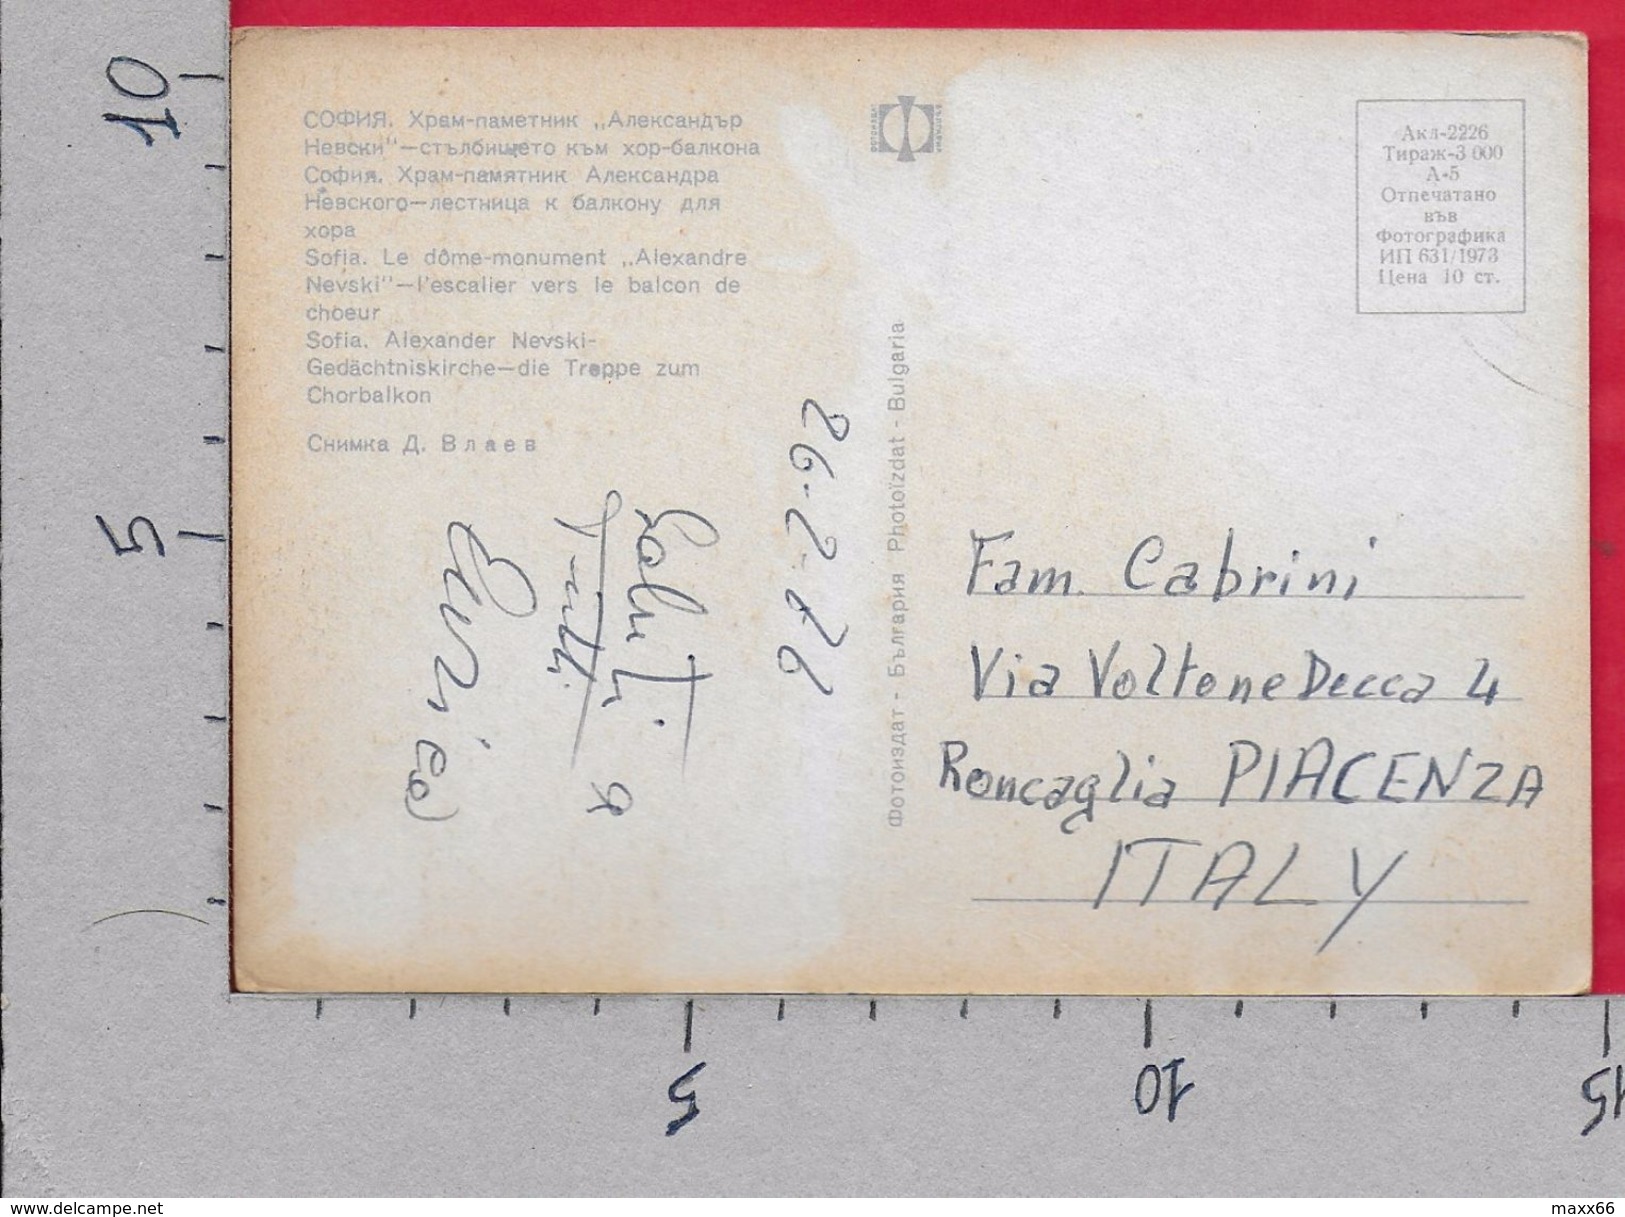 СОФИЯ. Храм-паметник „Александър
Невски"—стълбището към хор-балкона
София. Храм-памятник Александра
Невского—лестница к балкону для
хора
Sofia. Le dôme-monument „Alexandre
Nevski"—l'escalier vers le balcon de
choeur
Sofia. Alexander Nevski-
Gedächtniskirche—die Treppe zum
Chorbalkon
Снимка Д. Влаев
26-2-76
Saluti
a tutti
Фотоиздат - България Photoïzdat - Bulgaria
Акл-2226
Тираж-3 000
А-5
Отпечатано
във
Фотографика
ИП 631/1973
Цена 10 ст.
Fam. Cabrini
Via Voltone Decca 4
Roncaglia PIACENZA
ITALY
10
5
5
10
15
delcampe.net
maxx66